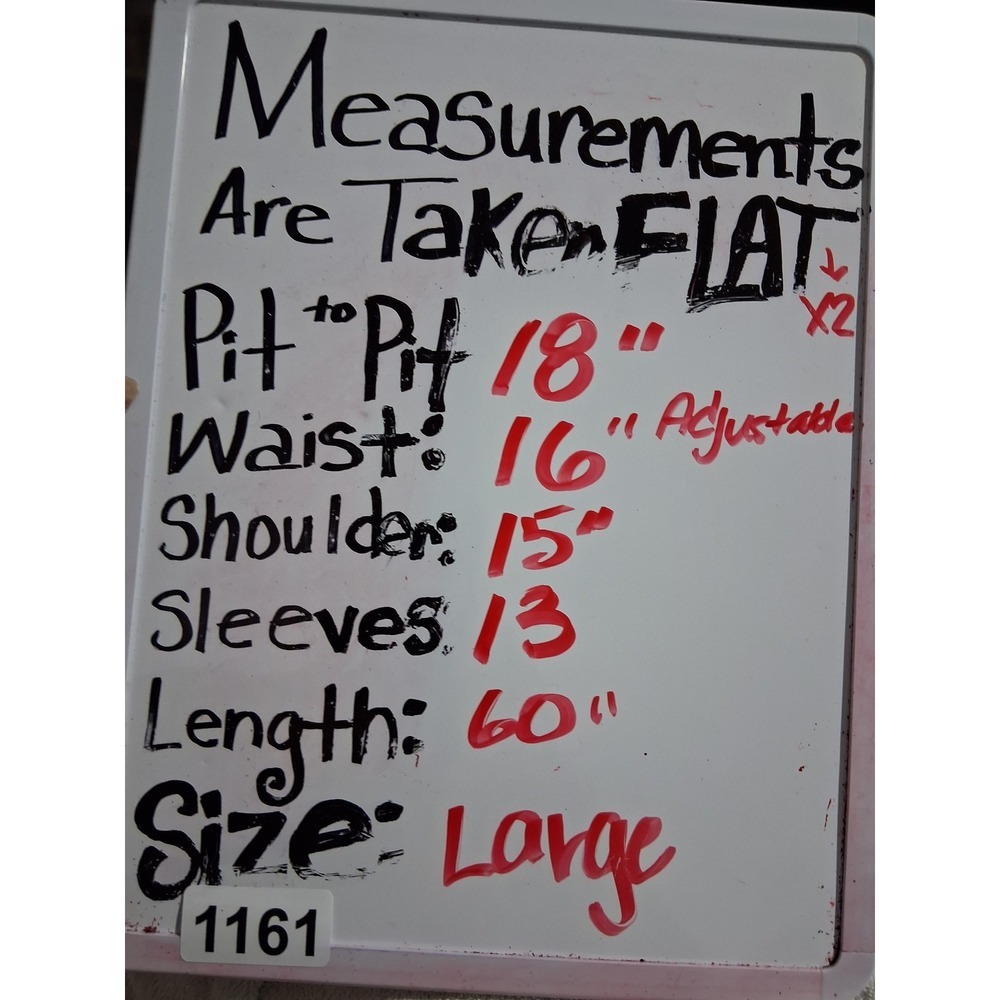 Measurements
Are Taken FLAT
↓
X2
Pit to Pit 18"
Waist: 16" Adjustable
Shoulder: 15"
Sleeves: 13
Length: 60"
Size: Large
1161